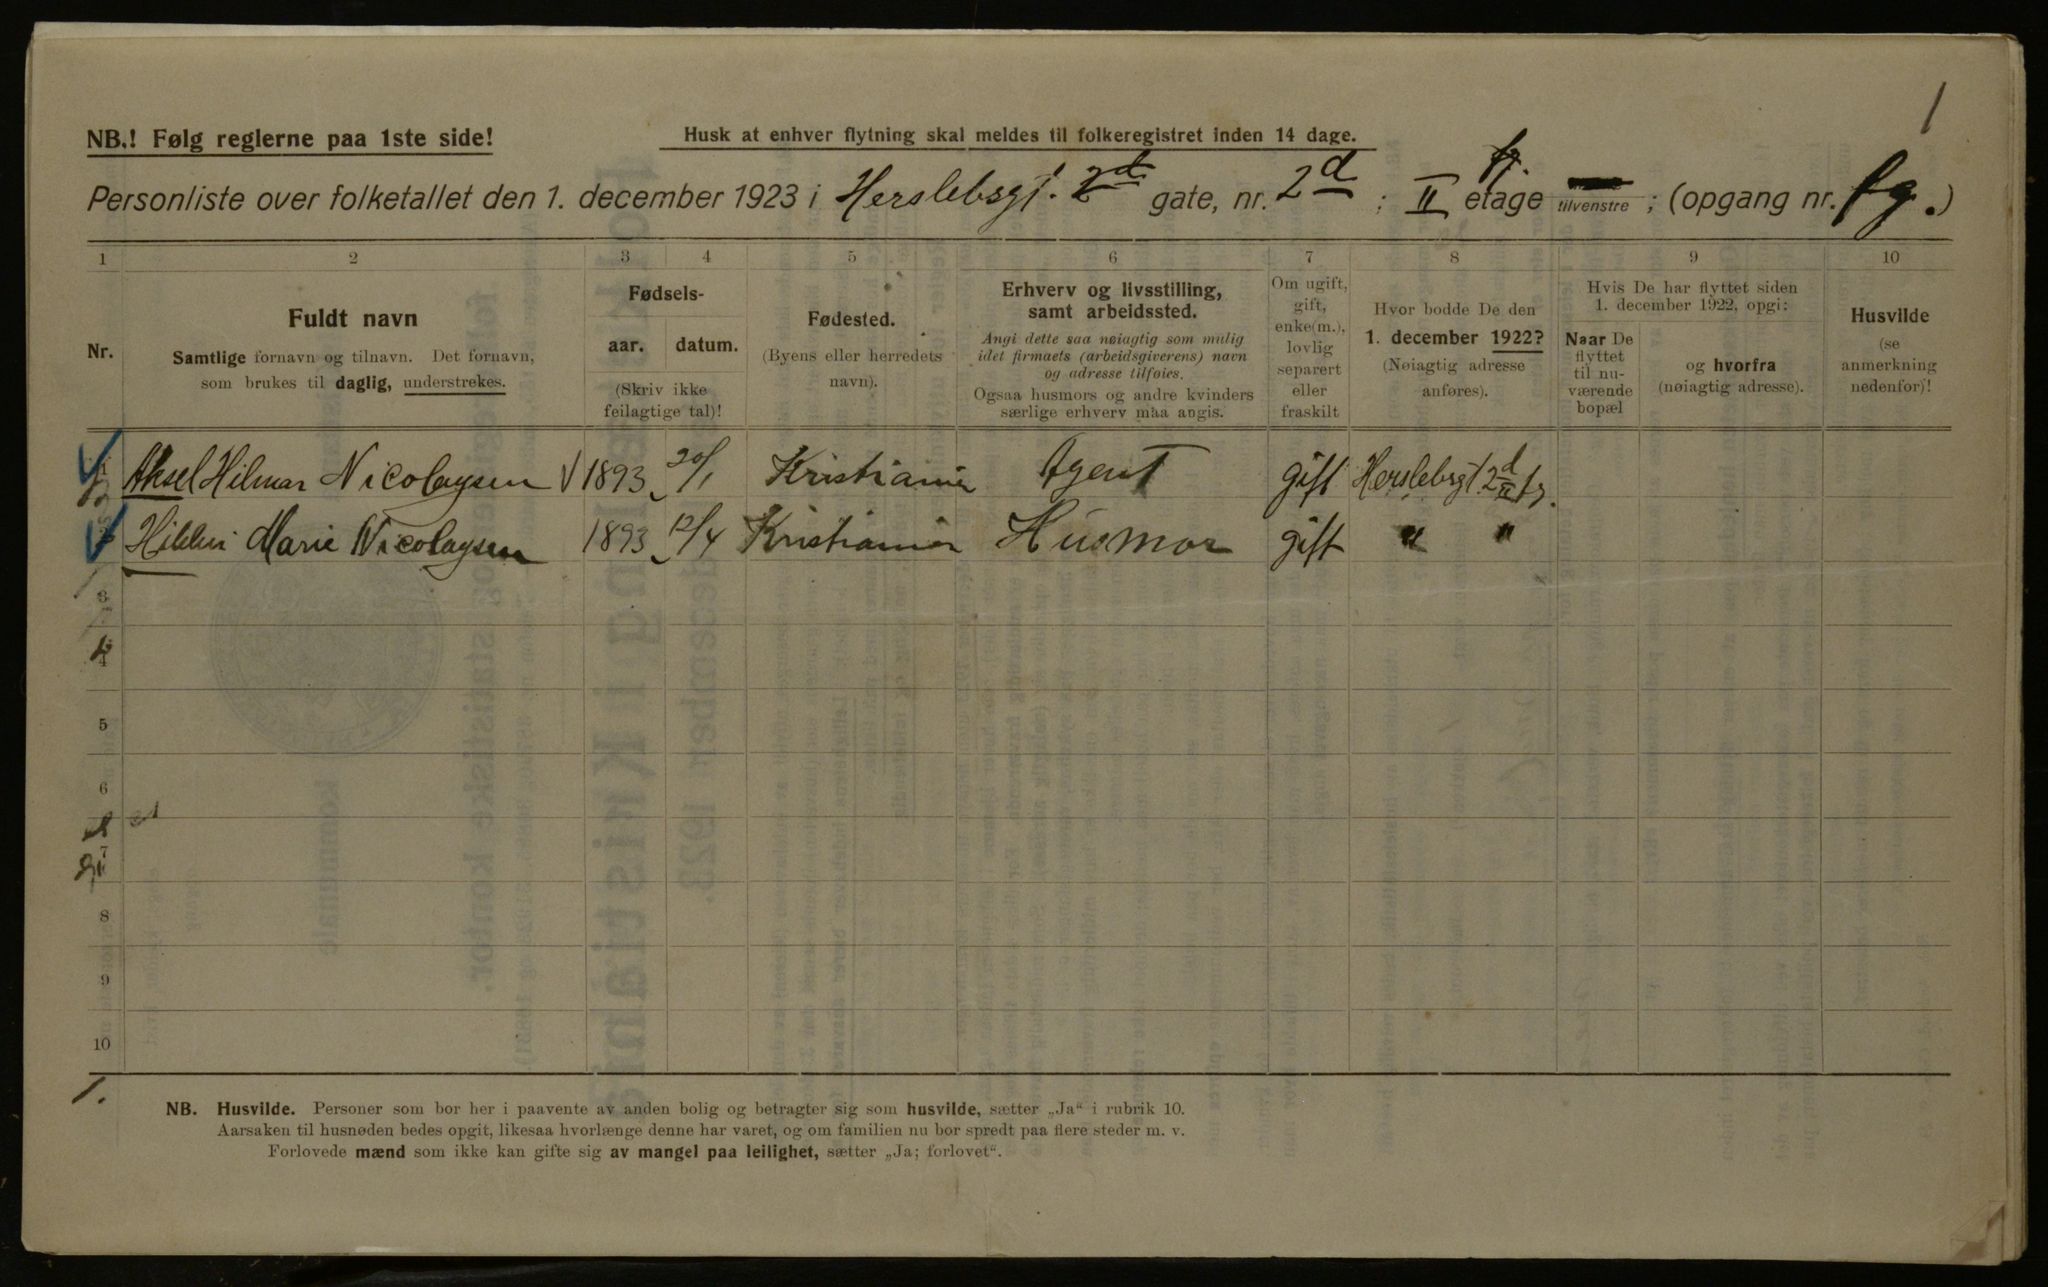 1
NB.! Følg reglerne paa 1ste side!
Husk at enhver flytning skal meldes til folkeregistret inden 14 dage.
Personliste over folketallet den 1. december 1923 i Herslebsgt. 2d gate, nr. 2d ; II etage fg. tilvenstre ; (opgang nr. fg.)
1 2 3 4 5 6 7 8 9 10
Nr.
Fuldt navn
Samtlige fornavn og tilnavn. Det fornavn,
som brukes til daglig, understrekes.
Fødsels-
aar. datum.
(Skriv ikke
feilagtige tal)!
Fødested.
(Byens eller herredets
navn).
Erhverv og livsstilling,
samt arbeidssted.
Angi dette saa nøiagtig som mulig
idet firmaets (arbeidsgiverens) navn
og adresse tilføies.
Ogsaa husmors og andre kvinders
særlige erhverv maa angis.
Om ugift,
gift,
enke(m.),
lovlig
separert
eller
fraskilt
Hvor bodde De den
1. december 1922?
(Nøiagtig adresse
anføres).
Hvis De har flyttet siden
1. december 1922, opgi:
Naar De
flyttet
til nu-
værende
bopæl
og hvorfra
(nøiagtig adresse).
Husvilde
(se
anmerkning
nedenfor)!
1 Aksel Hilmar Nicolaysen 1893 20/1 Kristiania Agent gift Herslebsgt 2d II fg.
Marie Nicolaysen 1893 12/4 Kristiania Husmor gift " "
3
4
5
6
7
8
9
10
1.
NB. Husvilde. Personer som bor her i paavente av anden bolig og betragter sig som husvilde, sætter „Ja“ i rubrik 10.
Aarsaken til husnøden bedes opgit, likesaa hvorlænge denne har varet, og om familien nu bor spredt paa flere steder m. v.
Forlovede mænd som ikke kan gifte sig av mangel paa leilighet, sætter „Ja; forlovet“.